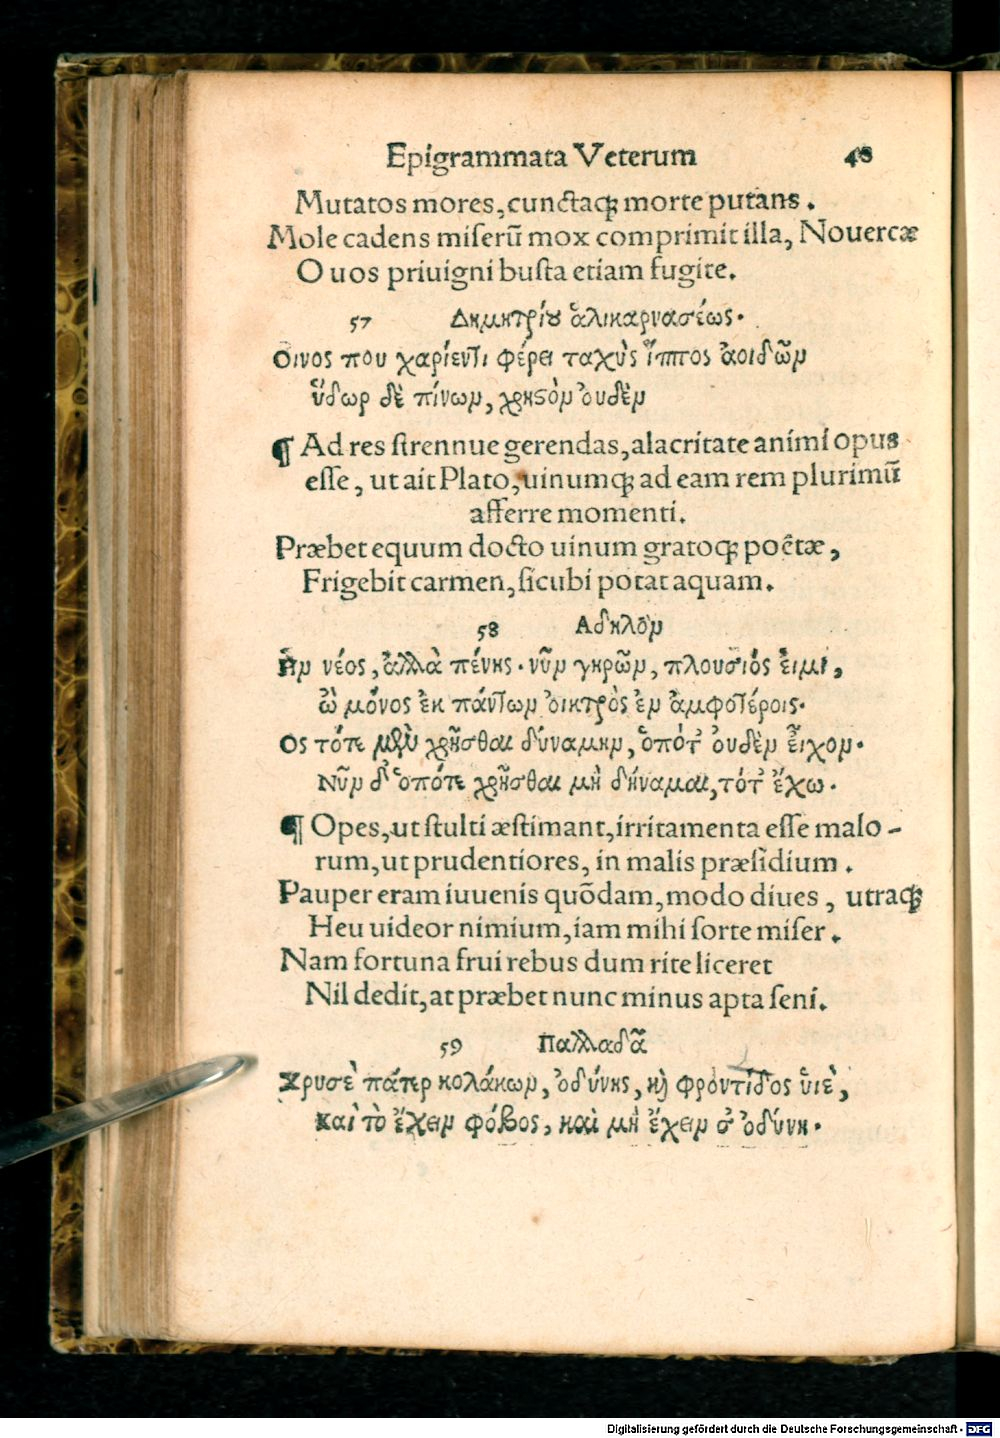 Epigrammata Veterum 48
Mutatos mores, cunctaqꝫ morte putans.
Mole cadens miserũ mox comprimit illa, Nouercæ
O uos priuigni busta etiam fugite.
57 Δημητρίȣ ἁλικαρνασέως.
Οινος που χαρίεντι φέρει ταχὺς ἵππος ἀοιδῶμ
ὕδωρ δὲ πίνωμ, χρηϛὸμ ὀυδὲμ
¶ Ad res strennue gerendas, alacritate animi opus
esse, ut ait Plato, uinumqꝫ ad eam rem plurimũ
afferre momenti.
Præbet equum docto uinum gratoqꝫ poêtæ,
Frigebit carmen, sicubi potat aquam.
58 Αδηλȣμ
Ημ νέος, ἀλλὰ πένης. νῦμ γηρῶμ, πλουσιός ἐιμι,
ὢ μόνος ἐκ πάντωμ ὀικτρὸς ἐμ ἀμφοτέροις.
Ος τότε μὲν χρῆσθαι δύναμημ, ὁπότ' ὀυδὲμ ἐῖχομ.
Νῦμ δ' ὁπότε χρῆσθαι μὴ δήναμαι, τότ' ἔχω.
¶ Opes, ut stulti æstimant, irritamenta esse malo-
rum, ut prudentiores, in malis præsidium.
Pauper eram iuuenis quõdam, modo diues, utraqꝫ
Heu uideor nimium, iam mihi sorte miser.
Nam fortuna frui rebus dum rite liceret
Nil dedit, at præbet nunc minus apta seni.
59 Παλλαδᾶ
Χρυσὲ πάτερ κολάκωμ, ὀδύνης, κὴ φροντίδος ὑιὲ,
Και τὸ ἔχειμ φόβος, και μὴ ἔχειμ σ' ὀδύνη.
Digitalisierung gefördert durch die Deutsche Forschungsgemeinschaft - DFG